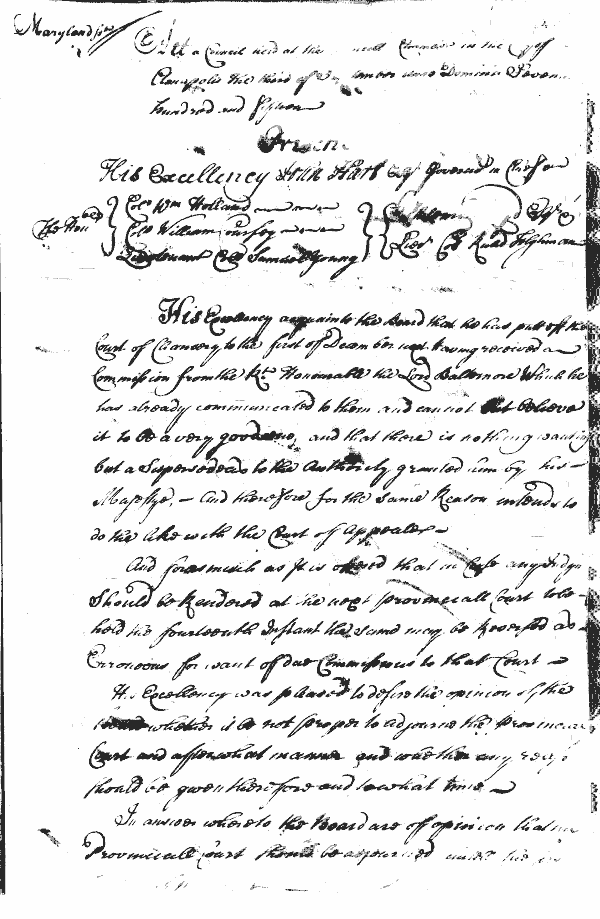 Maryland ss
Att a Council held at the Council Chamber in the City of
Annapolis the third of September anno Domini Seven
hundred and fifteen
Present
His Excellency John Hart Esq Governor in Cheif
The Honble Coll Wm Holland Esqrs
Coll William Coursey Lieut Coll Richd Tilghman
Lieutenant Coll Samuel Young
His Excellency acquaints the Board that he has putt off the
Court of Chancery to the first of December next having received a
Commission from the Rt Honourable the Lord Baltemore Which he
has already communicated to them and cannot But believe
it to be a very good one, and that there is nothing wanting
but a Supersedeas to the Authority granted him by his
Majestye, And therefore for the same Reason intends to
do the like with the Court of Appeales
And forasmuch as It is offered that in Case any Judgm
Should be Rendered at the next Provinciall Court to be
held the fourteenth Instant the same may be Reversed as
Erroneous for want of due Commissions to that Court
His Excellency was pleased to desire the opinion of the
whether it be not proper to adjourne the Provinciall
Court and after what manner and whether any
should be given therefore and to what time
In answer whereto the Board are of opinion that the
Provinciall Court should be adjourned untill the